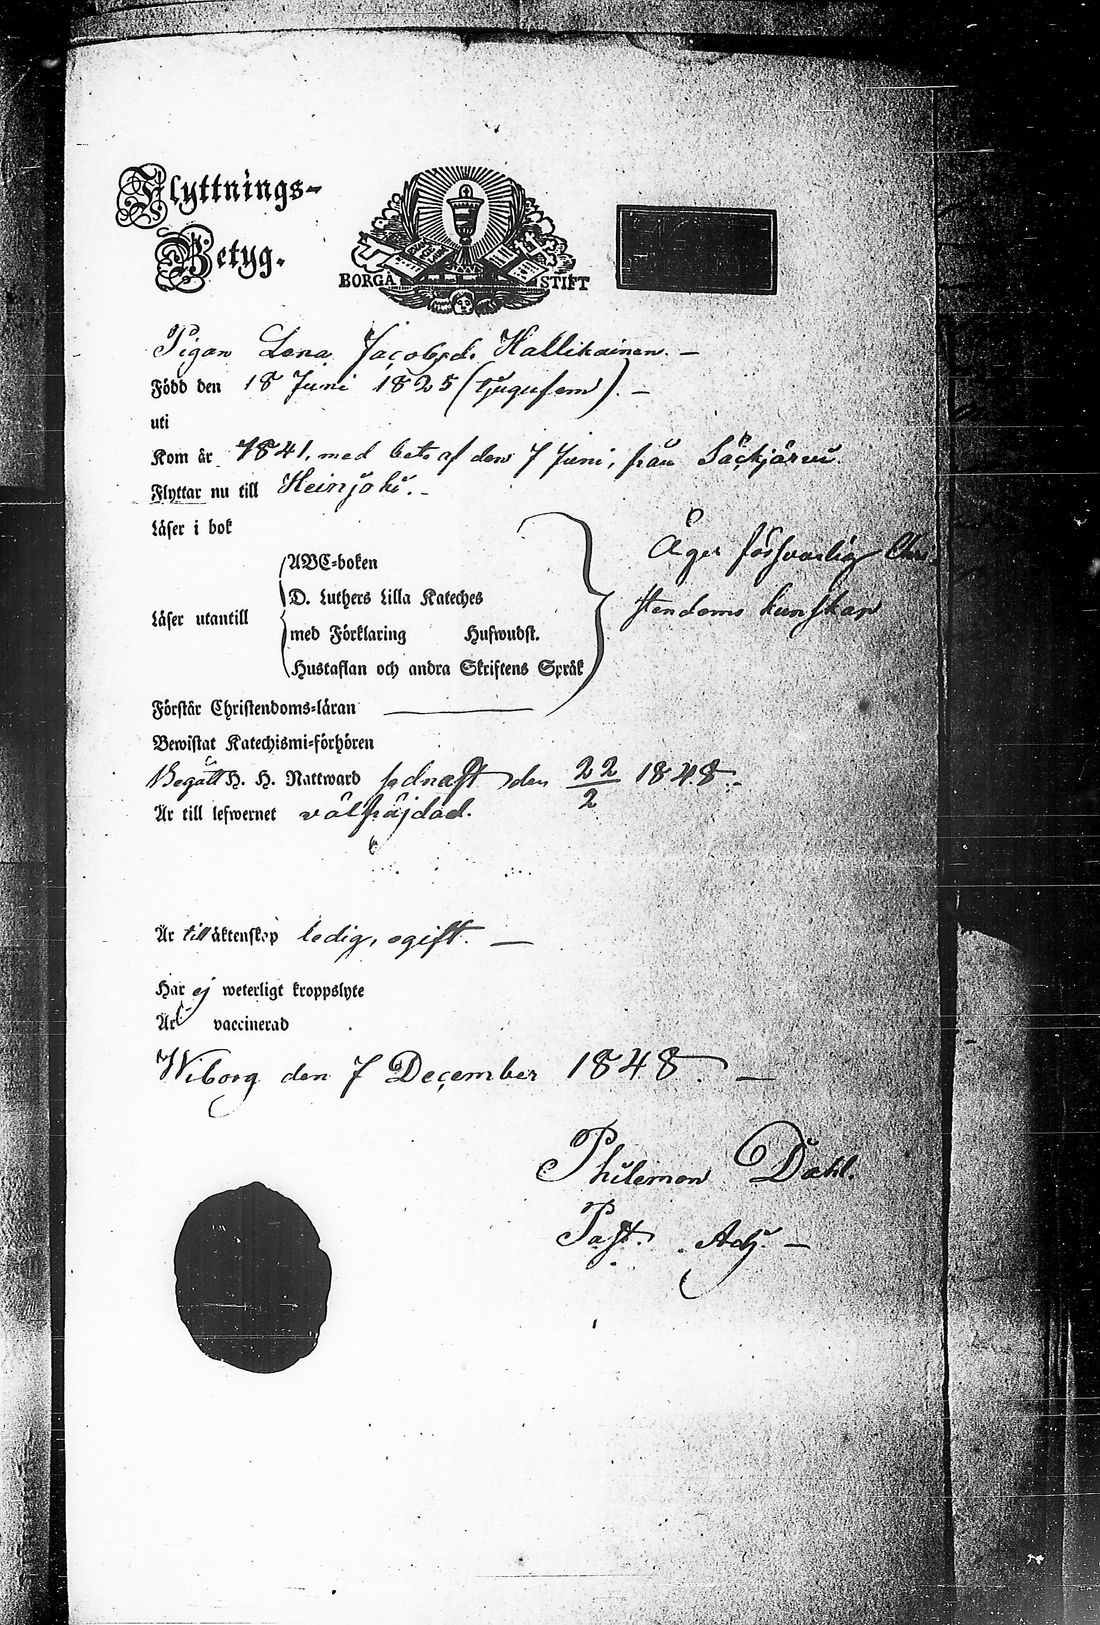 Flyttnings-
Betyg.
BORGÅ STIFT
Pigan Lena Jacobsd. Hallikainen. —
Född den 18 Juni 1825 (tjugufem). —
uti
Kom år 1841, med bet. af den 7 Juni, från Säckjärvi.
Flyttar nu till Heinjoki. -
Läser i bok
ABC-boken
Äger försvarlig Chri-
D. Luthers Lilla Kateches
stendoms kunskap
Läser utantill
med Förklaring Hufwudst.
Hustaflan och andra Skriftens Språk
Förstår Christendoms-läran
Bewistat Katechismi-förhören
Begått H. H. Nattward sednast den 22/2 1848. -
Är till lefwernet välfräjdad.
Är till äktenskap ledig, ogift. —
Har ej weterligt kroppslyte
Är vaccinerad
Wiborg den 7 December 1848. —
Philemon Dahl.
Past. Adj. —